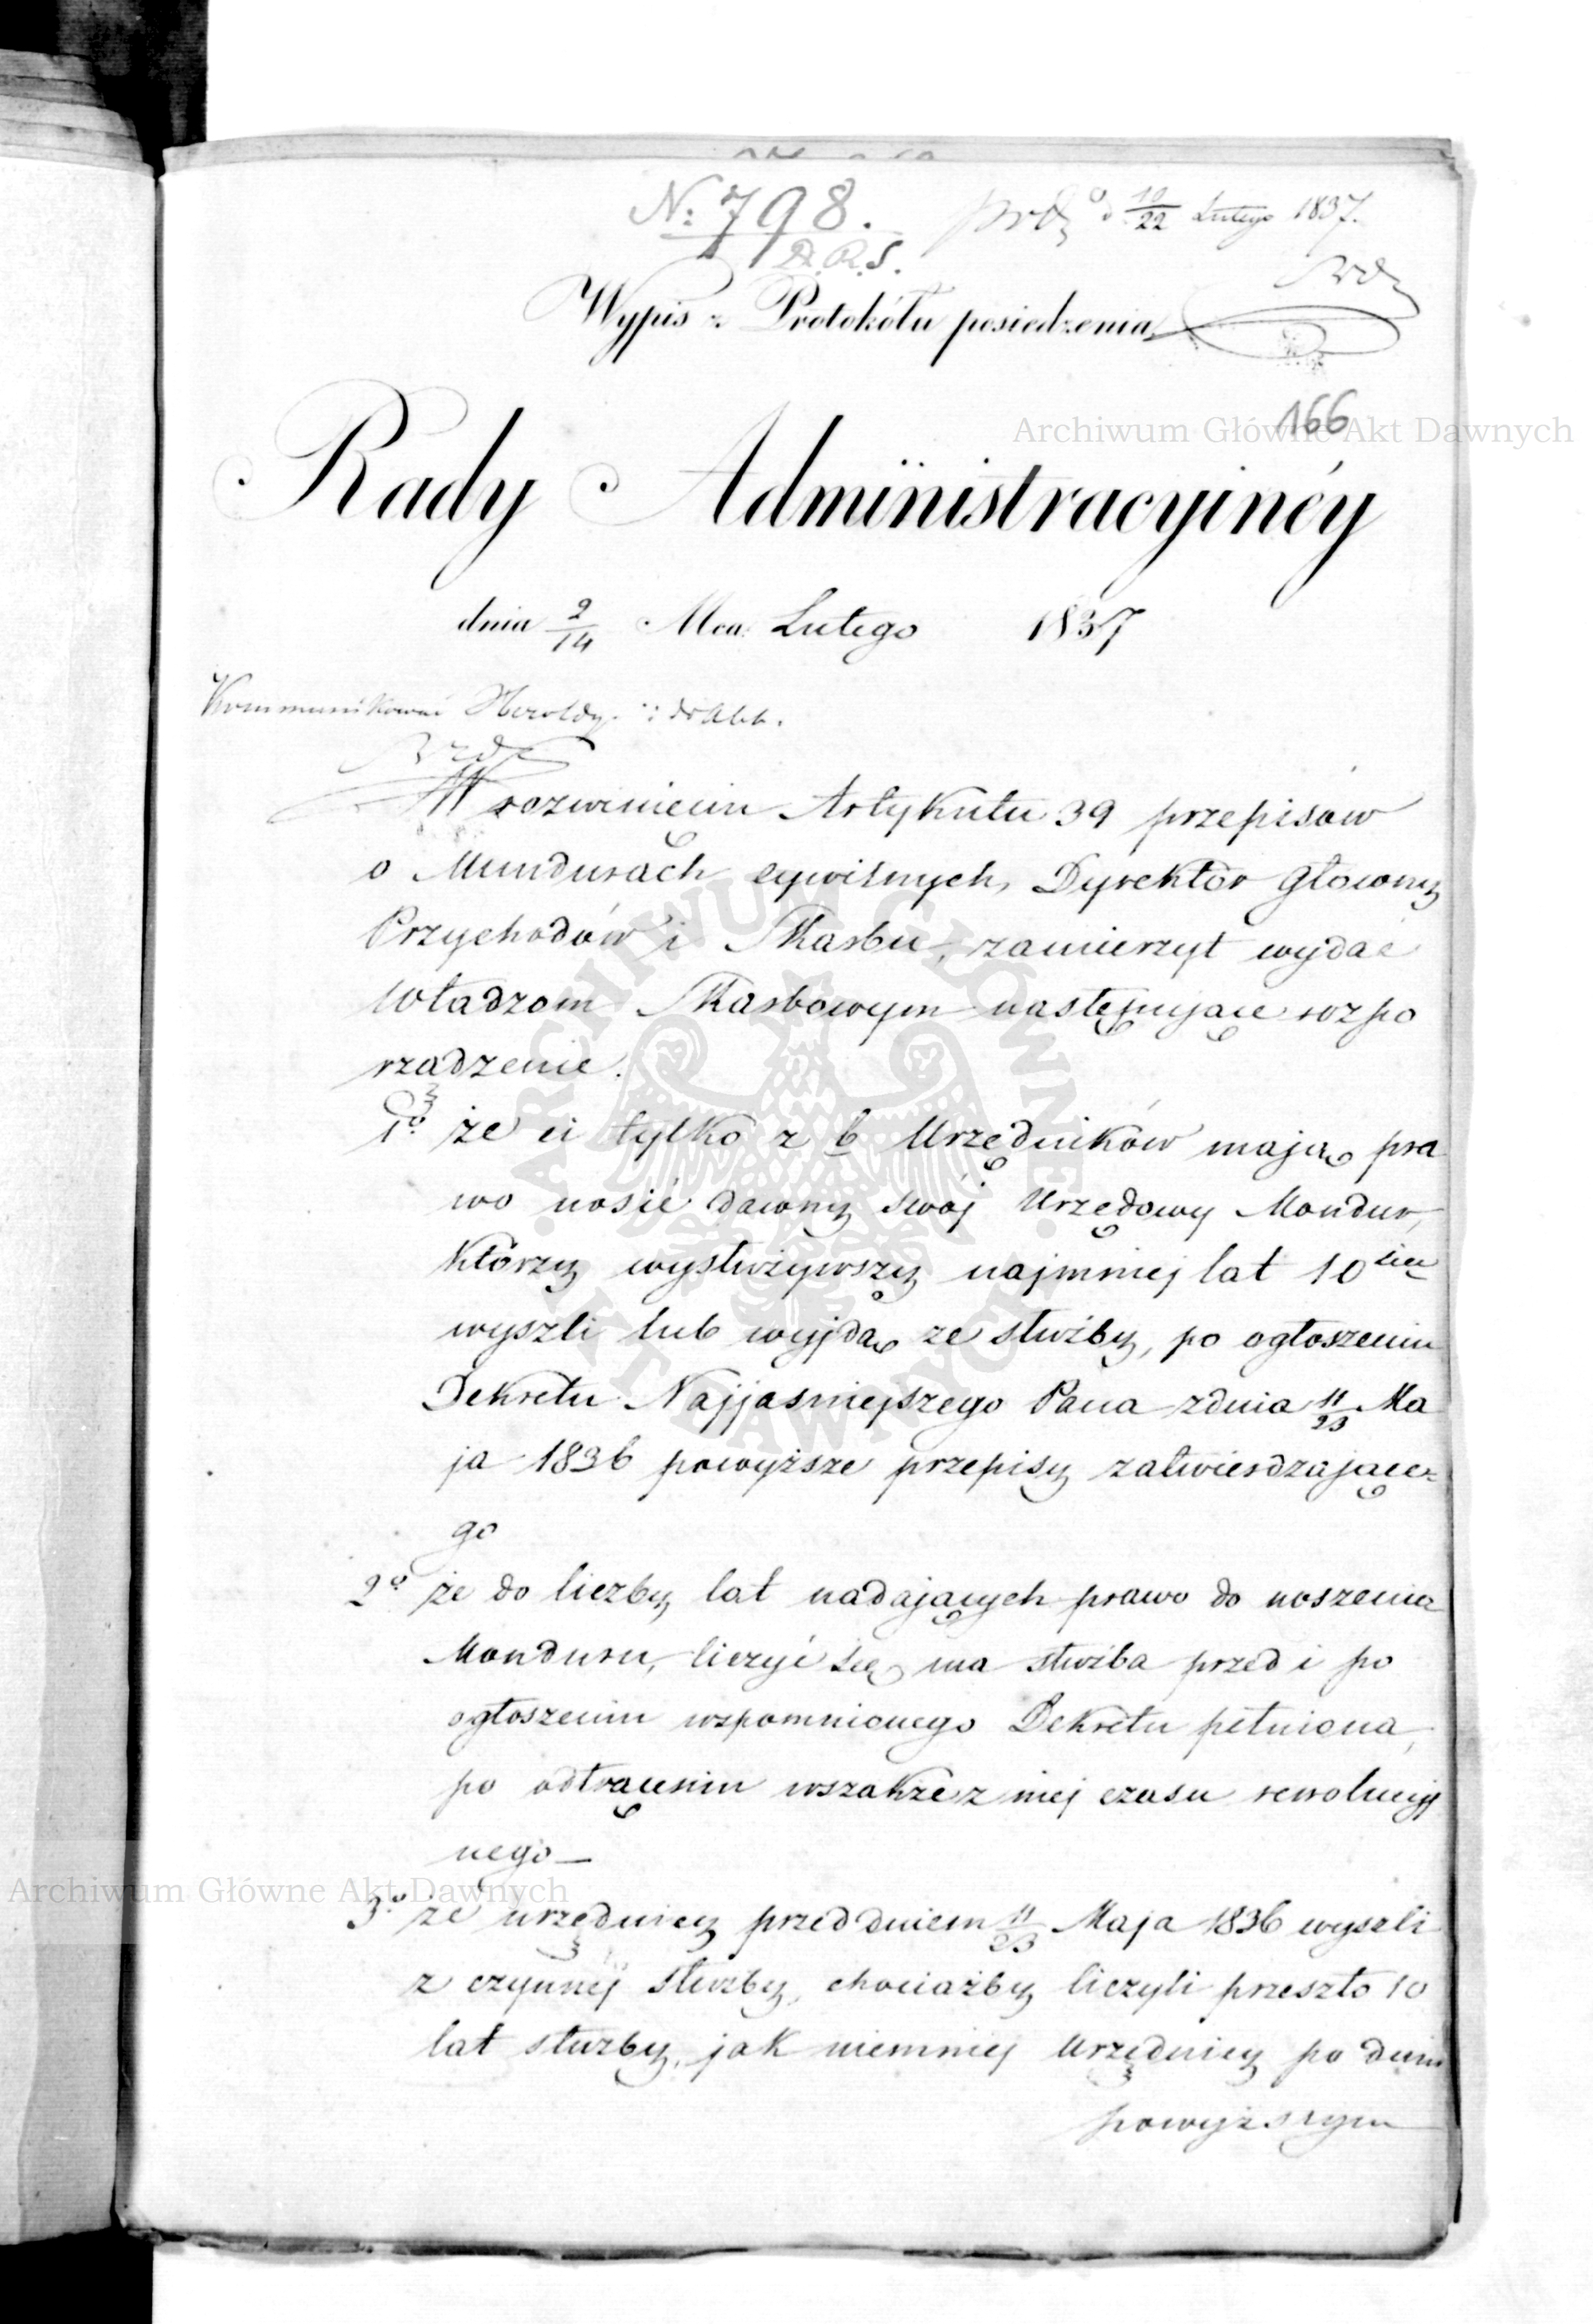 N: 798.
D.R.S.
d 10/22 Lutego 1837.
Wypis z Protokółu posiedzenia
166
Archiwum Główne Akt Dawnych
Rady Administracyinéy
dnia 2/14 Mca: Lutego 1837
Kommunikować Heroldyi
W rozwinięciu Artykułu 39 przepisów
o Mundurach cywilnych, Dyrektor Główny
Przychodów i Skarbu, zamierzył wydać
Władzom Skarbowym następujące rozpo
rządzenie.
1º że ci tylko z b Urzędników mają pra
wo nosić dawny swój Urzędowy Mondur,
którzy wysłużywszy najmniej lat 10
wyszli lub wyjdą ze służby, po ogłoszeniu
Dekretu Najjaśniejszego Pana z dnia 11/23 Ma
ja 1836 powyższe przepisy zatwierdzające=
go
2º że do liczby lat nadających prawo do noszenia
Monduru, liczyć się ma służba przed i po
ogłoszeniu wspomnionego Dekretu pełniona,
po odtrąceniu wszakże z niej czasu rewolucyj
nego_
Archiwum Główne Akt Dawnych
3º że urzędnicy przed dniem 11/23 Maja 1836 wyszli
z czynnej służby, chociażby liczyli przeszło 10
lat służby, jak niemniej Urzędnicy po dniu
powyższym
ARCHIWUM GŁÓWNE AKT DAWNYCH